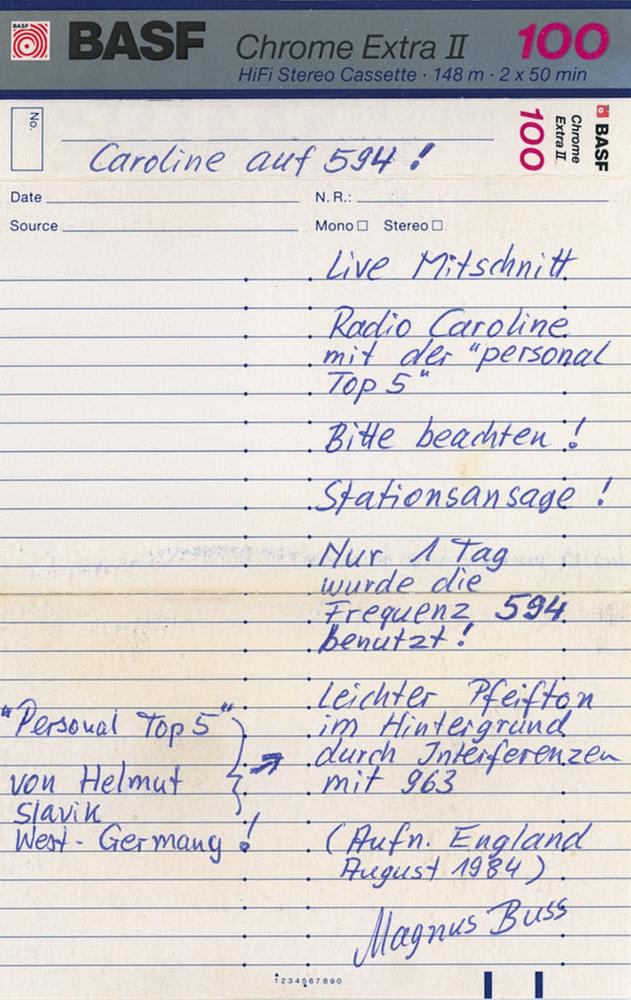 BASF Chrome Extra II 100
HiFi Stereo Cassette · 148 m · 2 x 50 min
No.
Caroline auf 594!
100
Chrome
Extra II
BASF
Date
N. R.:
Source
Mono □ Stereo □
Live Mitschnitt
Radio Caroline
mit der "personal
Top 5"
Bitte beachten!
Stationsansage!
Nur 1 Tag
wurde die
Frequenz 594
benutzt!
Leichter Pfeifton
im Hintergrund
durch Interferenzen
mit 963
"Personal Top 5"
von Helmut
Slavik
West-Germany!
(Aufn. England
August 1984)
Magnus Buss
1234567890